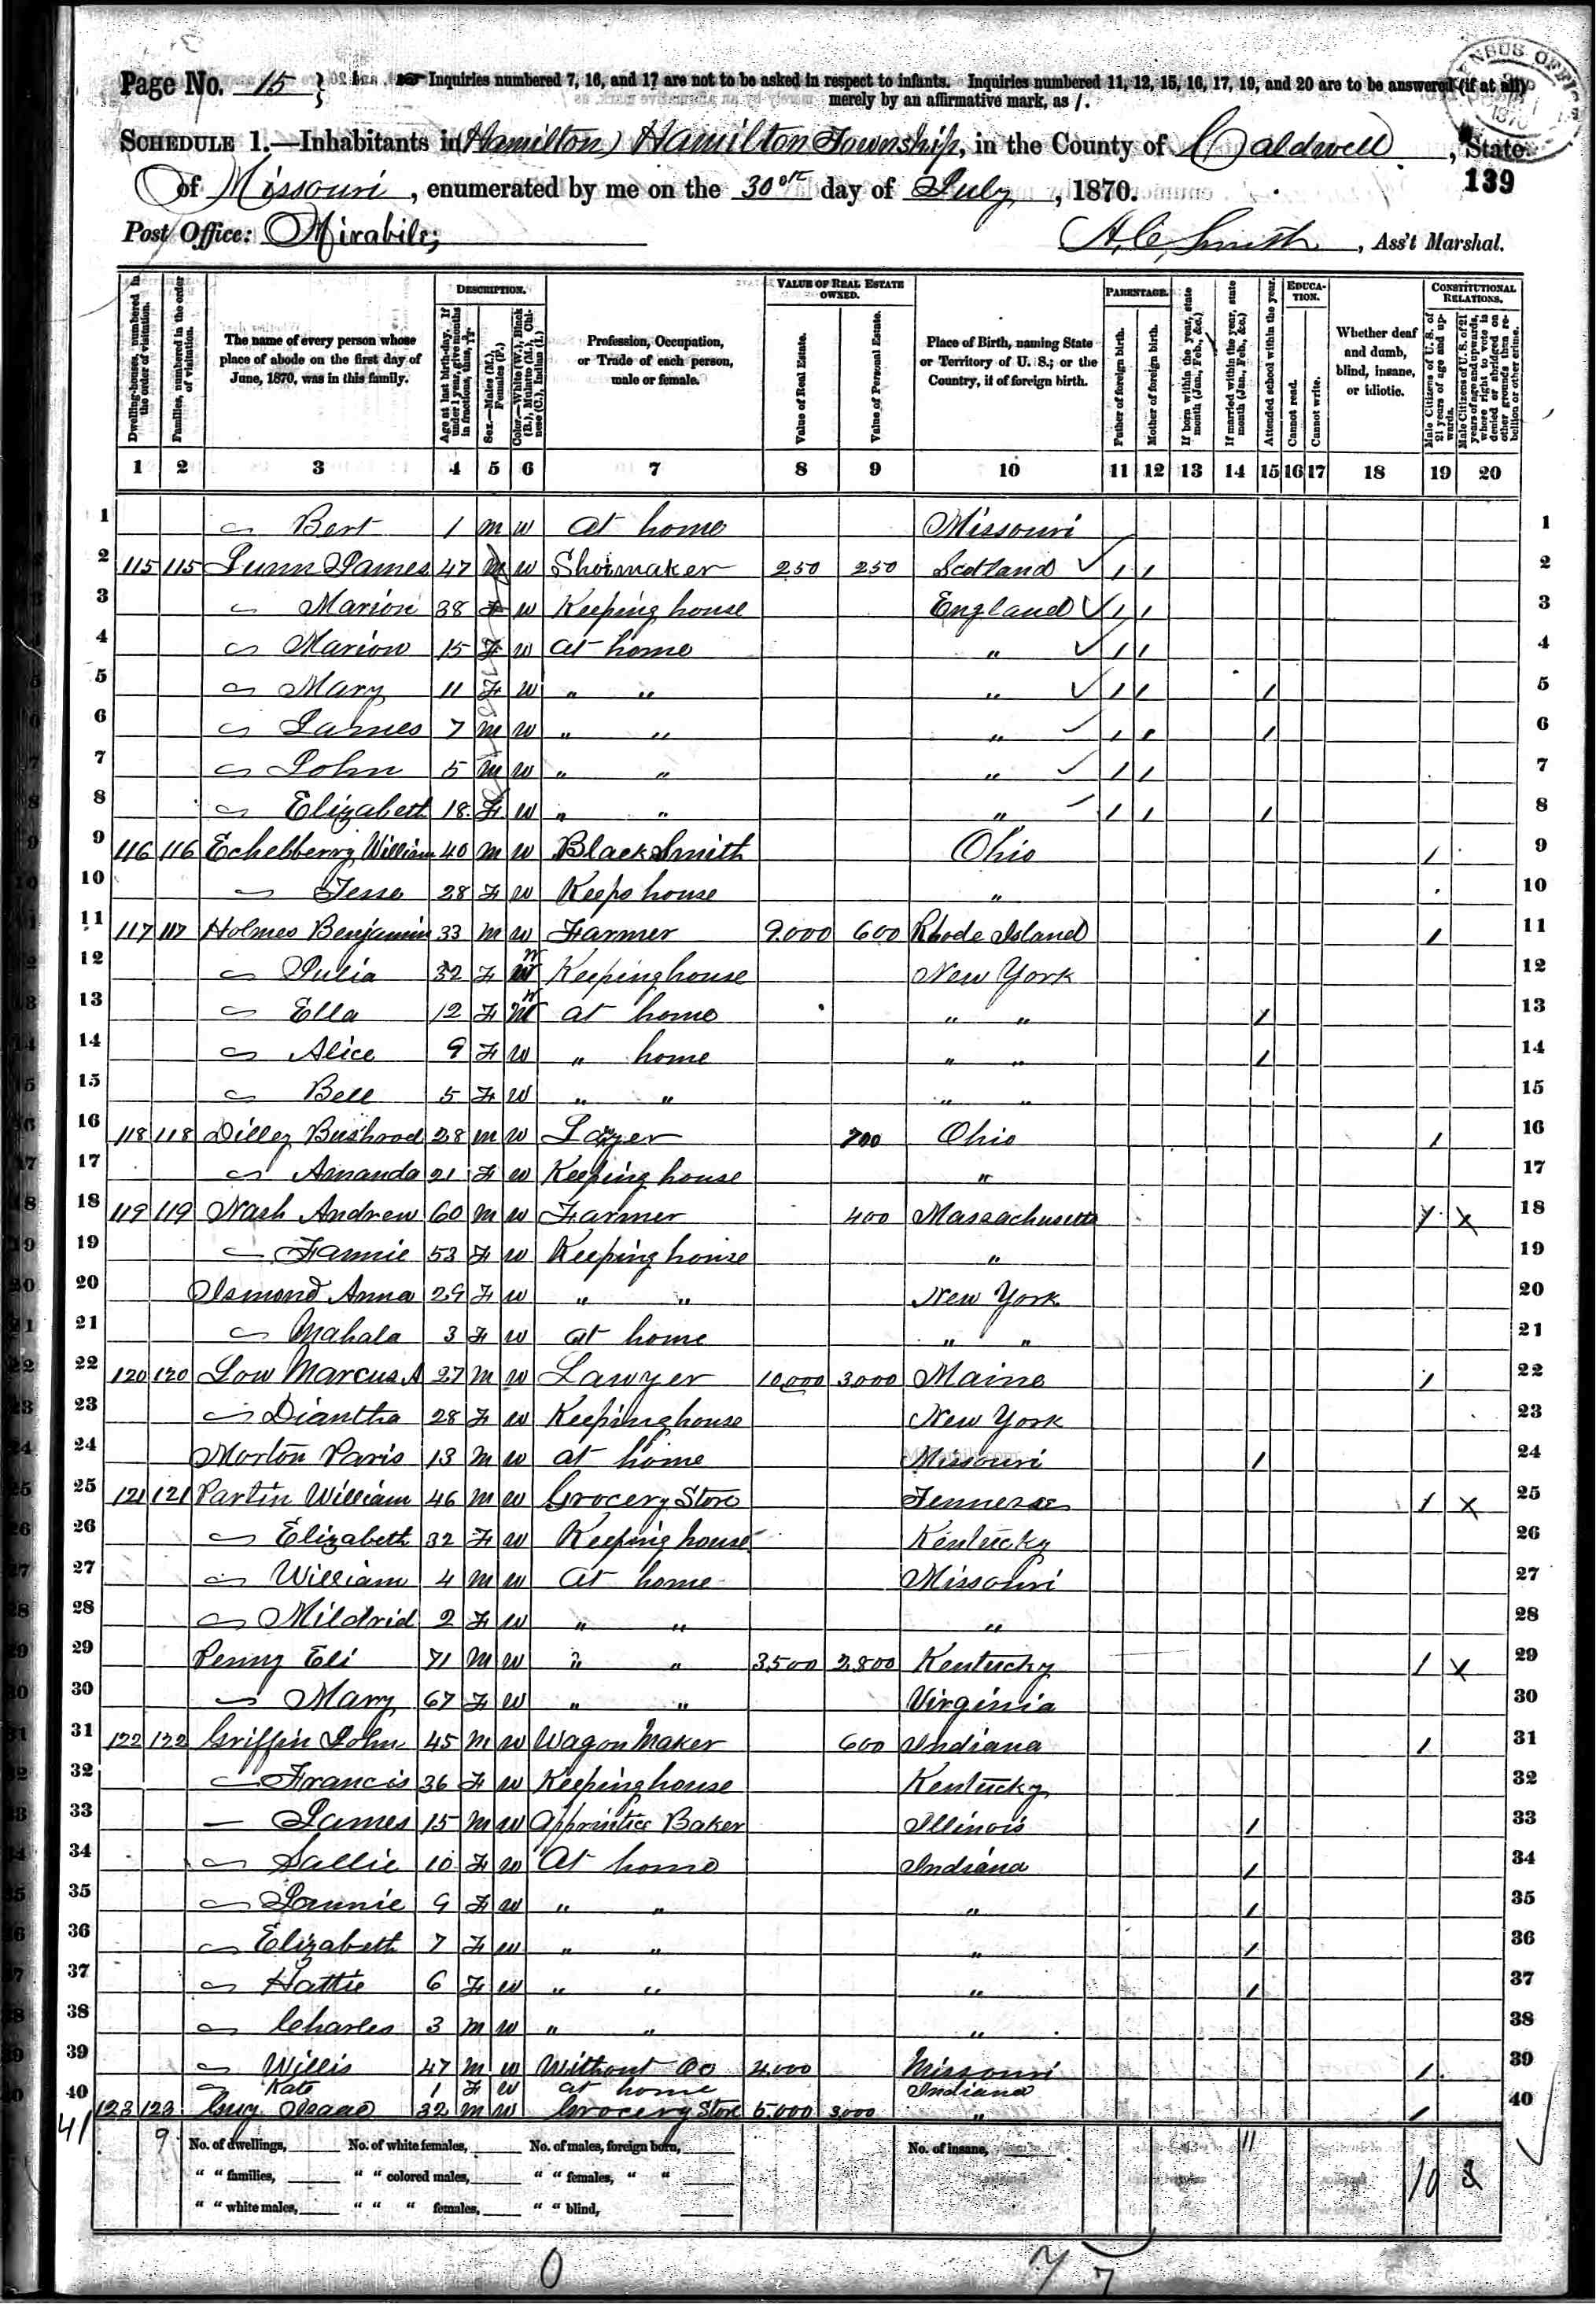 Page No. 15 } Inquiries numbered 7, 16, and 17 are not to be asked in respect to infants. Inquiries numbered 11, 12, 15, 16, 17, 19, and 20 are to be answered (if at all)
merely by an affirmative mark, as /.
SCHEDULE 1.—Inhabitants in (Hamilton) Hamilton Township, in the County of Caldwell, State
of Missouri, enumerated by me on the 30th day of July, 1870.
139
Post Office: Mirabile; A. C. Smith, Ass't Marshal.
Dwelling-houses, numbered in the order of visitation.
Families, numbered in the order of visitation.
The name of every person whose place of abode on the first day of June, 1870, was in this family.
DESCRIPTION.
Age at last birth-day. If under 1 year, give months in fractions, thus,
Sex.—Males (M.), Females (F.)
Color.—White (W.), Black (B.), Mulatto (M.), Chinese (C.), Indian (I.)
Profession, Occupation, or Trade of each person, male or female.
VALUE OF REAL ESTATE OWNED.
Value of Real Estate.
Value of Personal Estate.
Place of Birth, naming State or Territory of U. S.; or the Country, if of foreign birth.
PARENTAGE.
Father of foreign birth.
Mother of foreign birth.
If born within the year, state month (Jan., Feb., &c.)
If married within the year, state month (Jan., Feb., &c.)
Attended school within the year.
EDUCATION.
Cannot read.
Cannot write.
Whether deaf and dumb, blind, insane, or idiotic.
CONSTITUTIONAL RELATIONS.
Male Citizens of U. S. of 21 years of age and upwards.
Male Citizens of U. S. of 21 years of age and upwards, whose right to vote is denied or abridged on other grounds than rebellion or other crime.
1 2 3 4 5 6 7 8 9 10 11 12 13 14 15 16 17 18 19 20
1 Bert 1 m w at home Missouri 1
2 115 115 Dunn James 47 m w Shoemaker 250 250 Scotland / / 2
3 Marion 38 F w Keeping house England / / 3
4 Marion 15 F w at home " / / 4
5 Mary 11 F w " " " / / / 5
6 James 7 m w " " " / / / 6
7 John 5 m w " " " / / 7
8 Elizabeth 18 F w " " " / / / 8
9 116 116 Echelberry William 40 m w BlackSmith Ohio / 9
10 Jesse 28 F w Keeps house " 10
11 117 117 Holmes Benjamin 33 m w Farmer 9.000 600 Rhode Island / 11
12 Julia 32 F w Keeping house New York 12
13 Ella 12 F w at home " " / 13
14 Alice 9 F w " home " " / 14
15 Bell 5 F w " " " " 15
16 118 118 Dilley Bushrod 28 m w 700 Ohio / 16
17 Amanda 21 F w Keeping house " 17
18 119 119 Nash Andrew 60 m w Farmer 400 Massachusetts / x 18
19 Fannie 53 F w Keeping house " 19
20 Osmond Anna 29 F w " " New York 20
21 Mahala 3 F w at home " " 21
22 120 120 Low Marcus A 27 m w Lawyer 10,000 3000 Maine / 22
23 Diantha 28 F w Keeping house New York 23
24 Morton Paris 13 m w at home Missouri / 24
25 121 121 Partin William 46 m w Grocery Store Tennessee / x 25
26 Elizabeth 32 F w Keeping house Kentucky 26
27 William 4 m w at home Missouri 27
28 Mildrid 2 F w " " " 28
29 Penny Eli 71 m w " " 3,500 2,800 Kentucky / x 29
30 Mary 67 F w " " Virginia 30
31 122 122 Griffin John 45 m w Wagon Maker 600 Indiana / 31
32 Francis 36 F w Keeping house Kentucky 32
33 James 15 m w Apprintice Baker Illinois / 33
34 Sallie 10 F w At home Indiana / 34
35 9 F w " " " / 35
36 Elizabeth 7 F w " " " / 36
37 Hattie 6 F w " " " / 37
38 Charles 3 m w " " " 38
39 Willis 47 m w Without Oc 4.000 Missouri / 39
40 Kate 1 F w at home Indiana 40
41 123 123 Guy Isaac 32 m w Grocery Store 5.000 3,000 " /
9 No. of dwellings, No. of white females, No. of males, foreign born, No. of insane, 11
" " families, " " colored males, " " females, " " 10 3
" " white males, " " " females, " " blind,
0 7 7